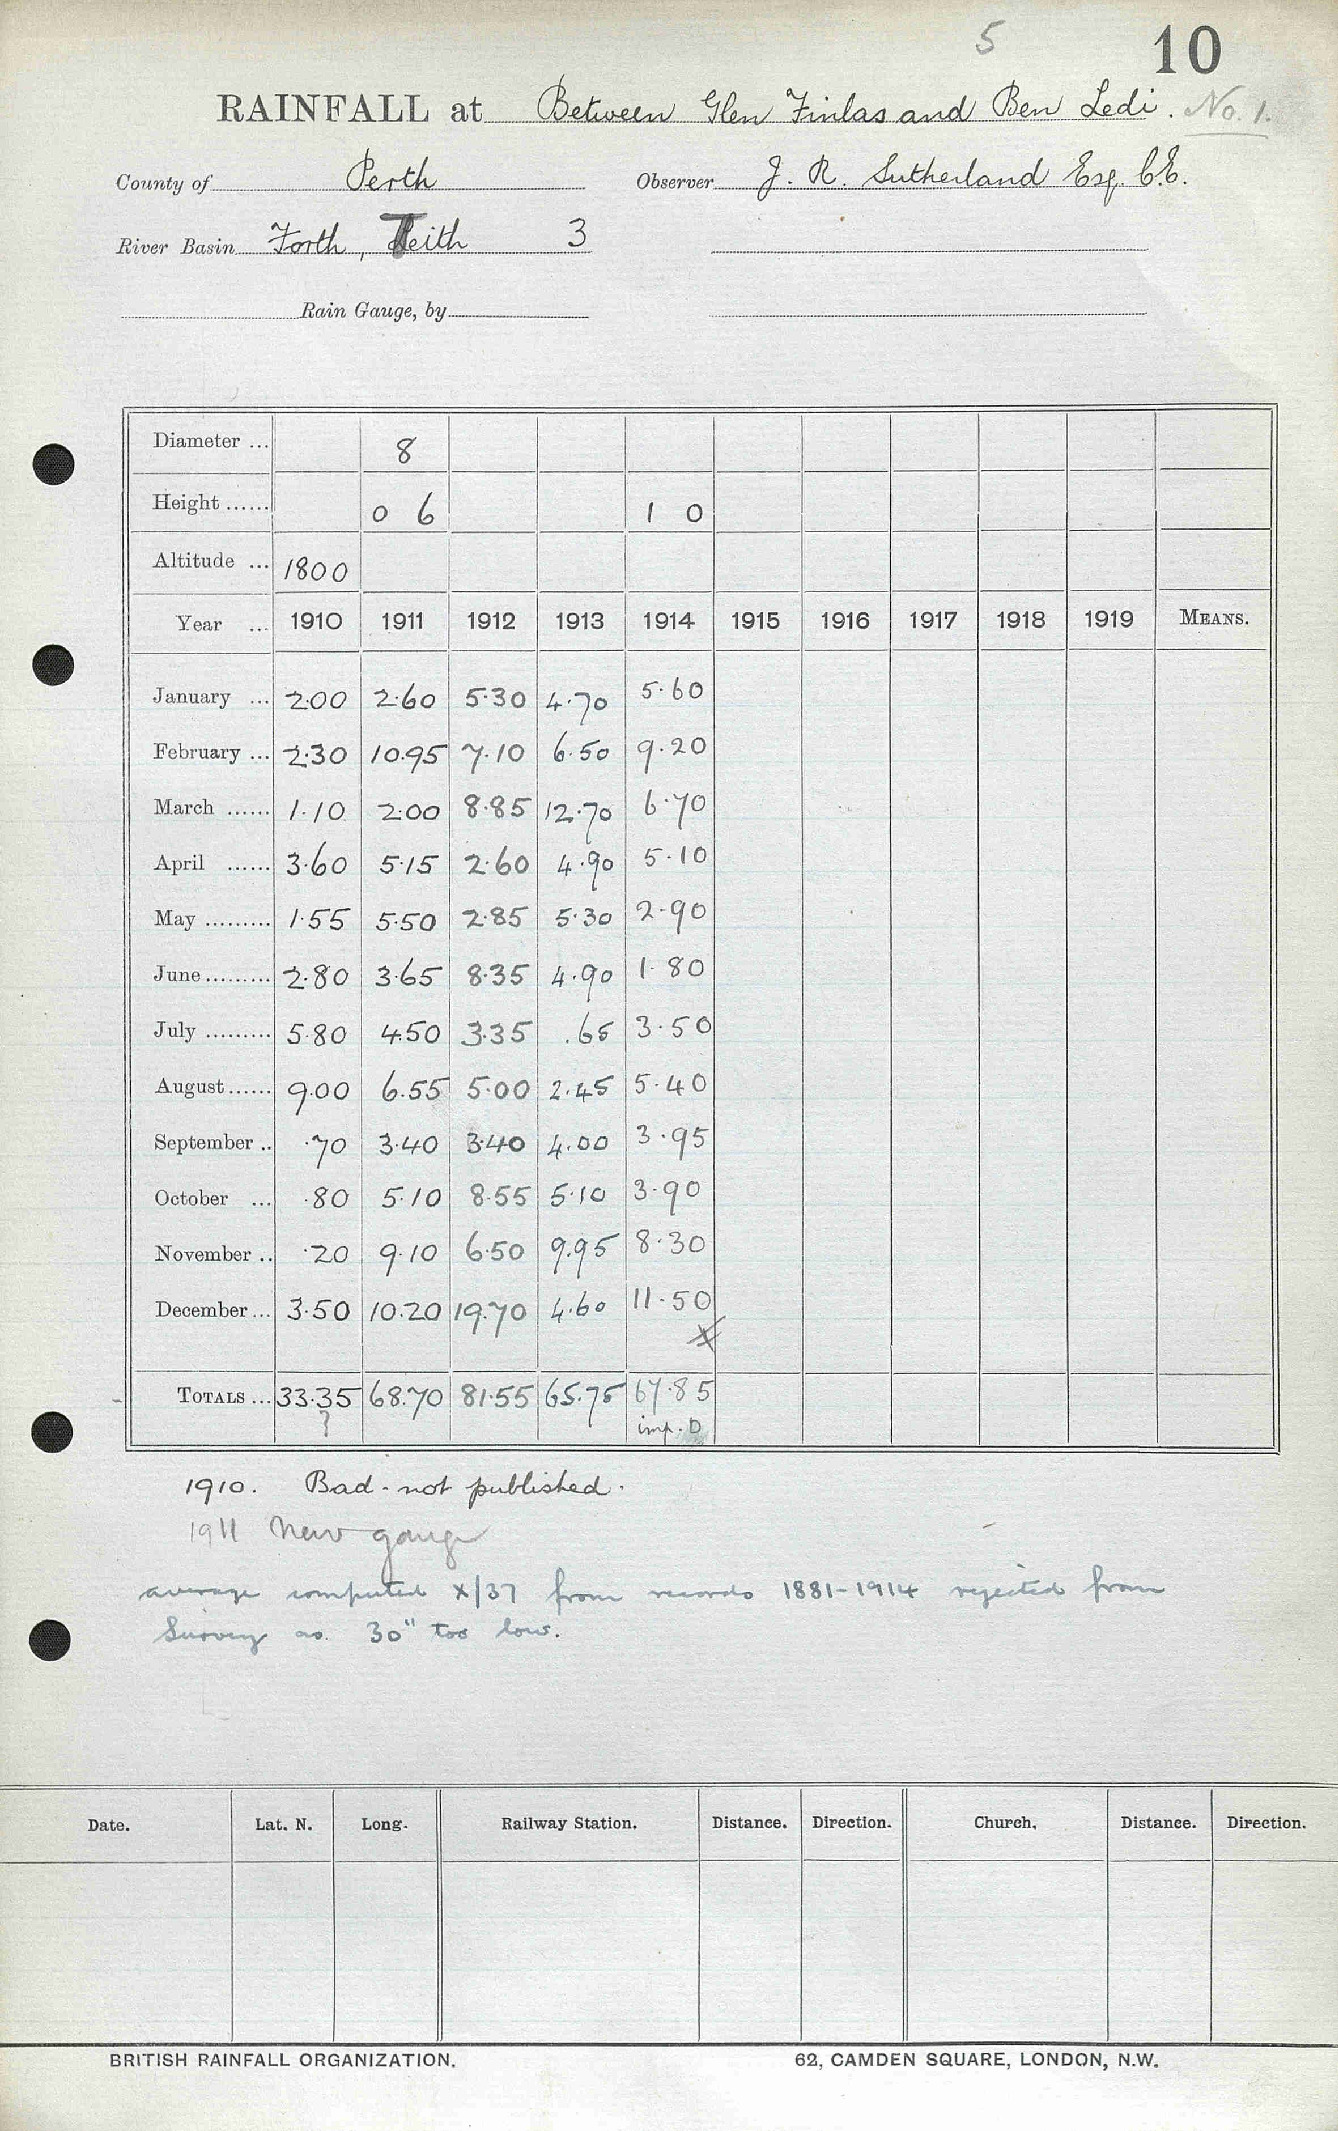 5 10
RAINFALL at Between Glen Finlas and Ben Ledi. No. 1.
County of Perth Observer J. R. Sutherland Esq. C.E.
River Basin Forth, Teith 3
Rain Gauge, by
Diameter ... 8
Height ...... 0 6 1 0
Altitude ... 1800
Year ... 1910 1911 1912 1913 1914 1915 1916 1917 1918 1919 MEANS.
January ... 2.00 2.60 5.30 4.70 5.60
February ... 2.30 10.95 7.10 6.50 9.20
March ...... 1.10 2.00 8.85 12.70 6.70
April ...... 3.60 5.15 2.60 4.90 5.10
May ......... 1.55 5.50 2.85 5.30 2.90
June ......... 2.80 3.65 8.35 4.90 1.80
July ......... 5.80 4.50 3.35 .65 3.50
August ...... 9.00 6.55 5.00 2.45 5.40
September .. .70 3.40 3.40 4.00 3.95
October ... .80 5.10 8.55 5.10 3.90
November .. .20 9.10 6.50 9.95 8.30
December ... 3.50 10.20 19.70 4.60 11.50
x
TOTALS ... 33.35 68.70 81.55 65.75 67.85
? imp. D
1910. Bad - not published.
1911 New gauge
average computed x/37 from records 1881-1914 rejected from
Survey as 30" too low.
Date. Lat. N. Long. Railway Station. Distance. Direction. Church. Distance. Direction.
BRITISH RAINFALL ORGANIZATION. 62, CAMDEN SQUARE, LONDON, N.W.